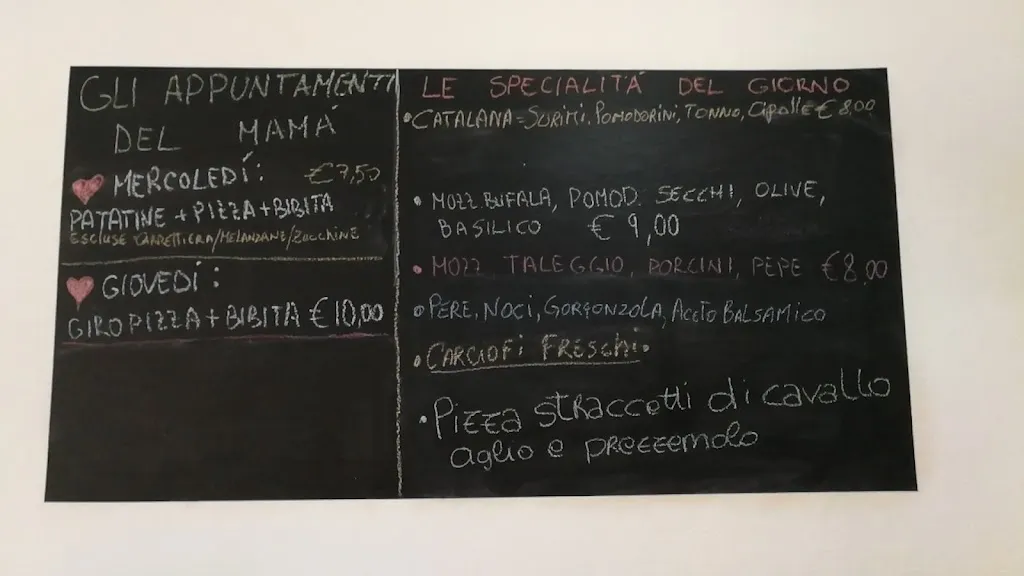 GLI APPUNTAMENTI
DEL MAMÁ
MERCOLEDÍ: €7,50
PATATINE + PIZZA + BIBITA
ESCLUSE CARRETTIERA/MELANZANE/ZUCCHINE
GIOVEDÍ:
GIRO PIZZA + BIBITA €10,00
LE SPECIALITÁ DEL GIORNO
•CATALANA=SURIMI, POMODORINI, TONNO, Cipolle € 8,00
• MOZZ BUFALA, POMOD. SECCHI, OLIVE,
BASILICO € 9,00
• MOZZ TALEGGIO, PORCINI, PEPE €8,00
•PERE, NOCI, GORGONZOLA, ACETO BALSAMICO
• CARCIOFI FRESCHI.
• Pizza straccetti di cavallo
aglio e prezzemolo